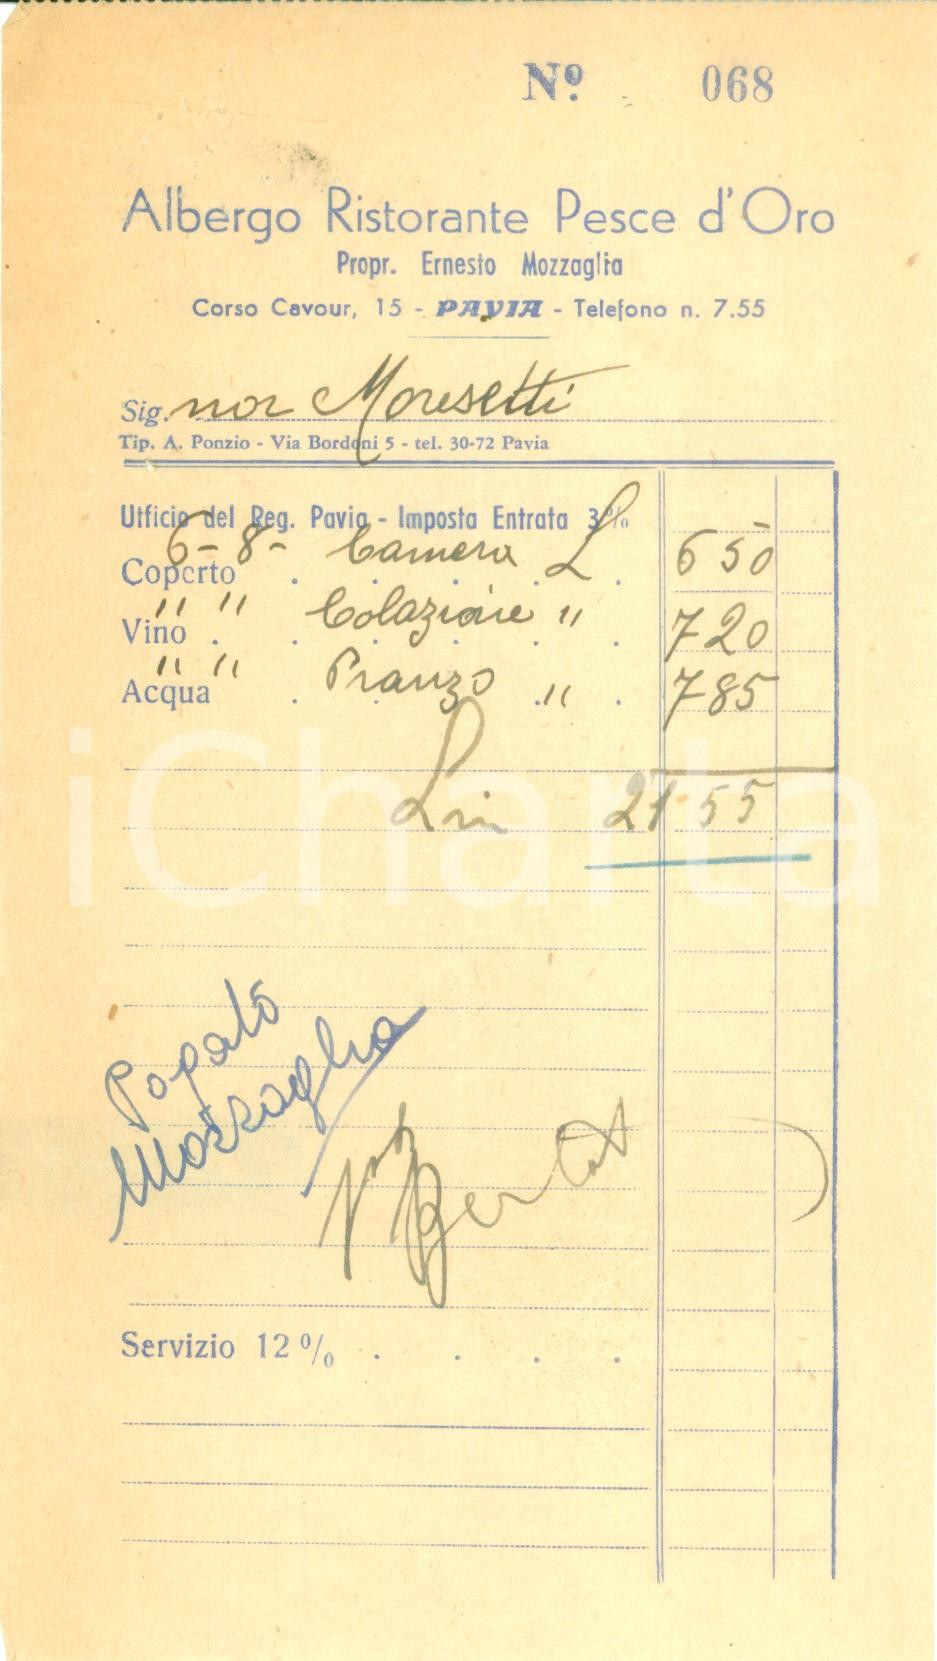 Nº 068
Albergo Ristorante Pesce d'Oro
Propr. Ernesto Mozzaglia
Corso Cavour, 15 - PAVIA - Telefono n. 7.55
Sig.nor Moresetti
Tip. A. Ponzio - Via Bordoni 5 - tel. 30-72 Pavia
Ufficio del Reg. Pavia - Imposta Entrata 3%
6-8- Camera L 650
Coperto
" " Colazione " 720
Vino
" " Pranzo " 785
Acqua
2155
iCharta
Pagato
Mozzaglia
Servizio 12%